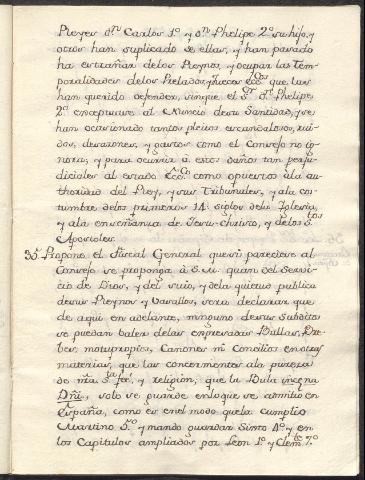 Reyes dⁿ Carlos 1º y dⁿ Phelipe 2º su hijo, y
otros han suplicado de ellas, y han pasado
ha estrañar delos Reynos, y ocupar las tem-
poralidades delos Prelados, y Jueces ecc.ᶜᵒˢ que las
han querido defender, sin que el S.ʳ dⁿ Phelipe
2º exceptuase al Nuncio de su Santidad, y se
han ocasionado tantos pleitos escandalosos, rui-
dos, desazones, y gastos como el Consejo no ig-
nora; y para ocurrir à estos daños tan perju-
diciales al estado Ecc.ᶜᵒ como opuestos ala au-
thoridad del Rey, y sus Tribunales, y ala cos-
tumbre delos primeros 14 siglos dela Iglesia,
y ala enseñanza de Jesu-Christo, y delos S.ᵗᵒˢ
Apostoles.
35. Propone el Fiscal General que si pareciese al
Consejo se proponga à S.M. quan del Servi-
cio de Dios, y del suio, y dela quietud publica
desus Reynos y Vasallos, sera declarar que
de aqui en adelante, ninguno desus Subditos
se puedan baler delas expresadas Bullas, Bre-
bes, motuproprios, Canones ni Concilios en otras
materias, que las concernientes ala pureza
de nr̄a S.ᵗᵃ feè, y religion, que la Bula incena
Dñi, solo se guarde en lo que se admitio en
España, como es en el modo que la cumplio
Martino 5.º y mando guardar Sixto 4º y en
los Capitulos ampliados por Leon 1º y Clem.ᵗᵉ 7º